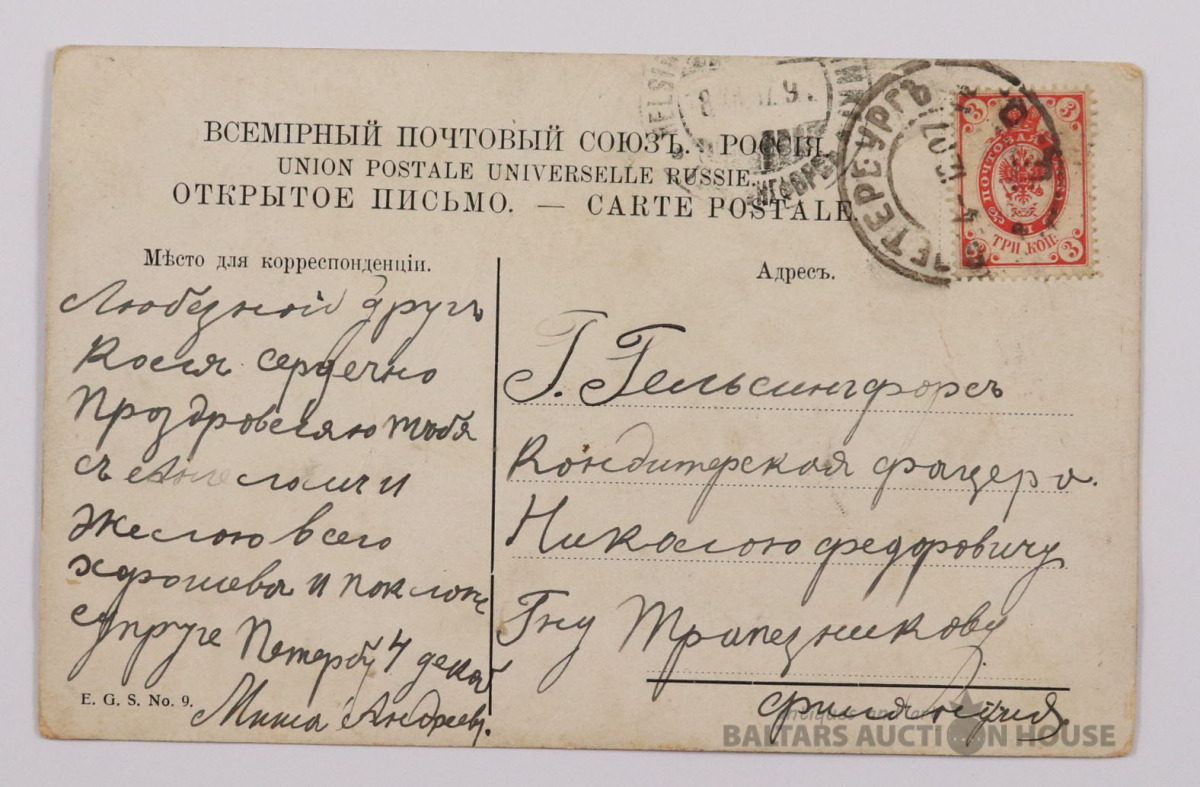 ВСЕМІРНЫЙ ПОЧТОВЫЙ СОЮЗЪ. РОССІЯ
UNION POSTALE UNIVERSELLE RUSSIE.
ОТКРЫТОЕ ПИСЬМО. — CARTE POSTALE.
ПЕТЕРБУРГЪ
3 3
ПОЧТОВАЯ
ТРИ КОП.
3 3
Мѣсто для корреспонденціи.
Любезной другъ
Костя сердечно
Проздровляю тъбя
съ Ангеломъ и
Желою всего
хорошева и поклонъ
супруге Петербу 4 декаб
Миша Андреев.
Адресъ.
Г. Гельсингфорсъ
Кондитерская фацера.
Николаю Федоровичу
Гну Трапезникову
Финляндия
E. G. S. No. 9.
BALTARS AUCTION HOUSE